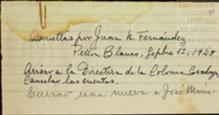 Devueltas por Juan N. Fernández
Peñón Blanco, Septbre 12, 1928
Aviso a la Directiva de la Colonia
Cancelar las cuentas.
Cursar una nueva a José María